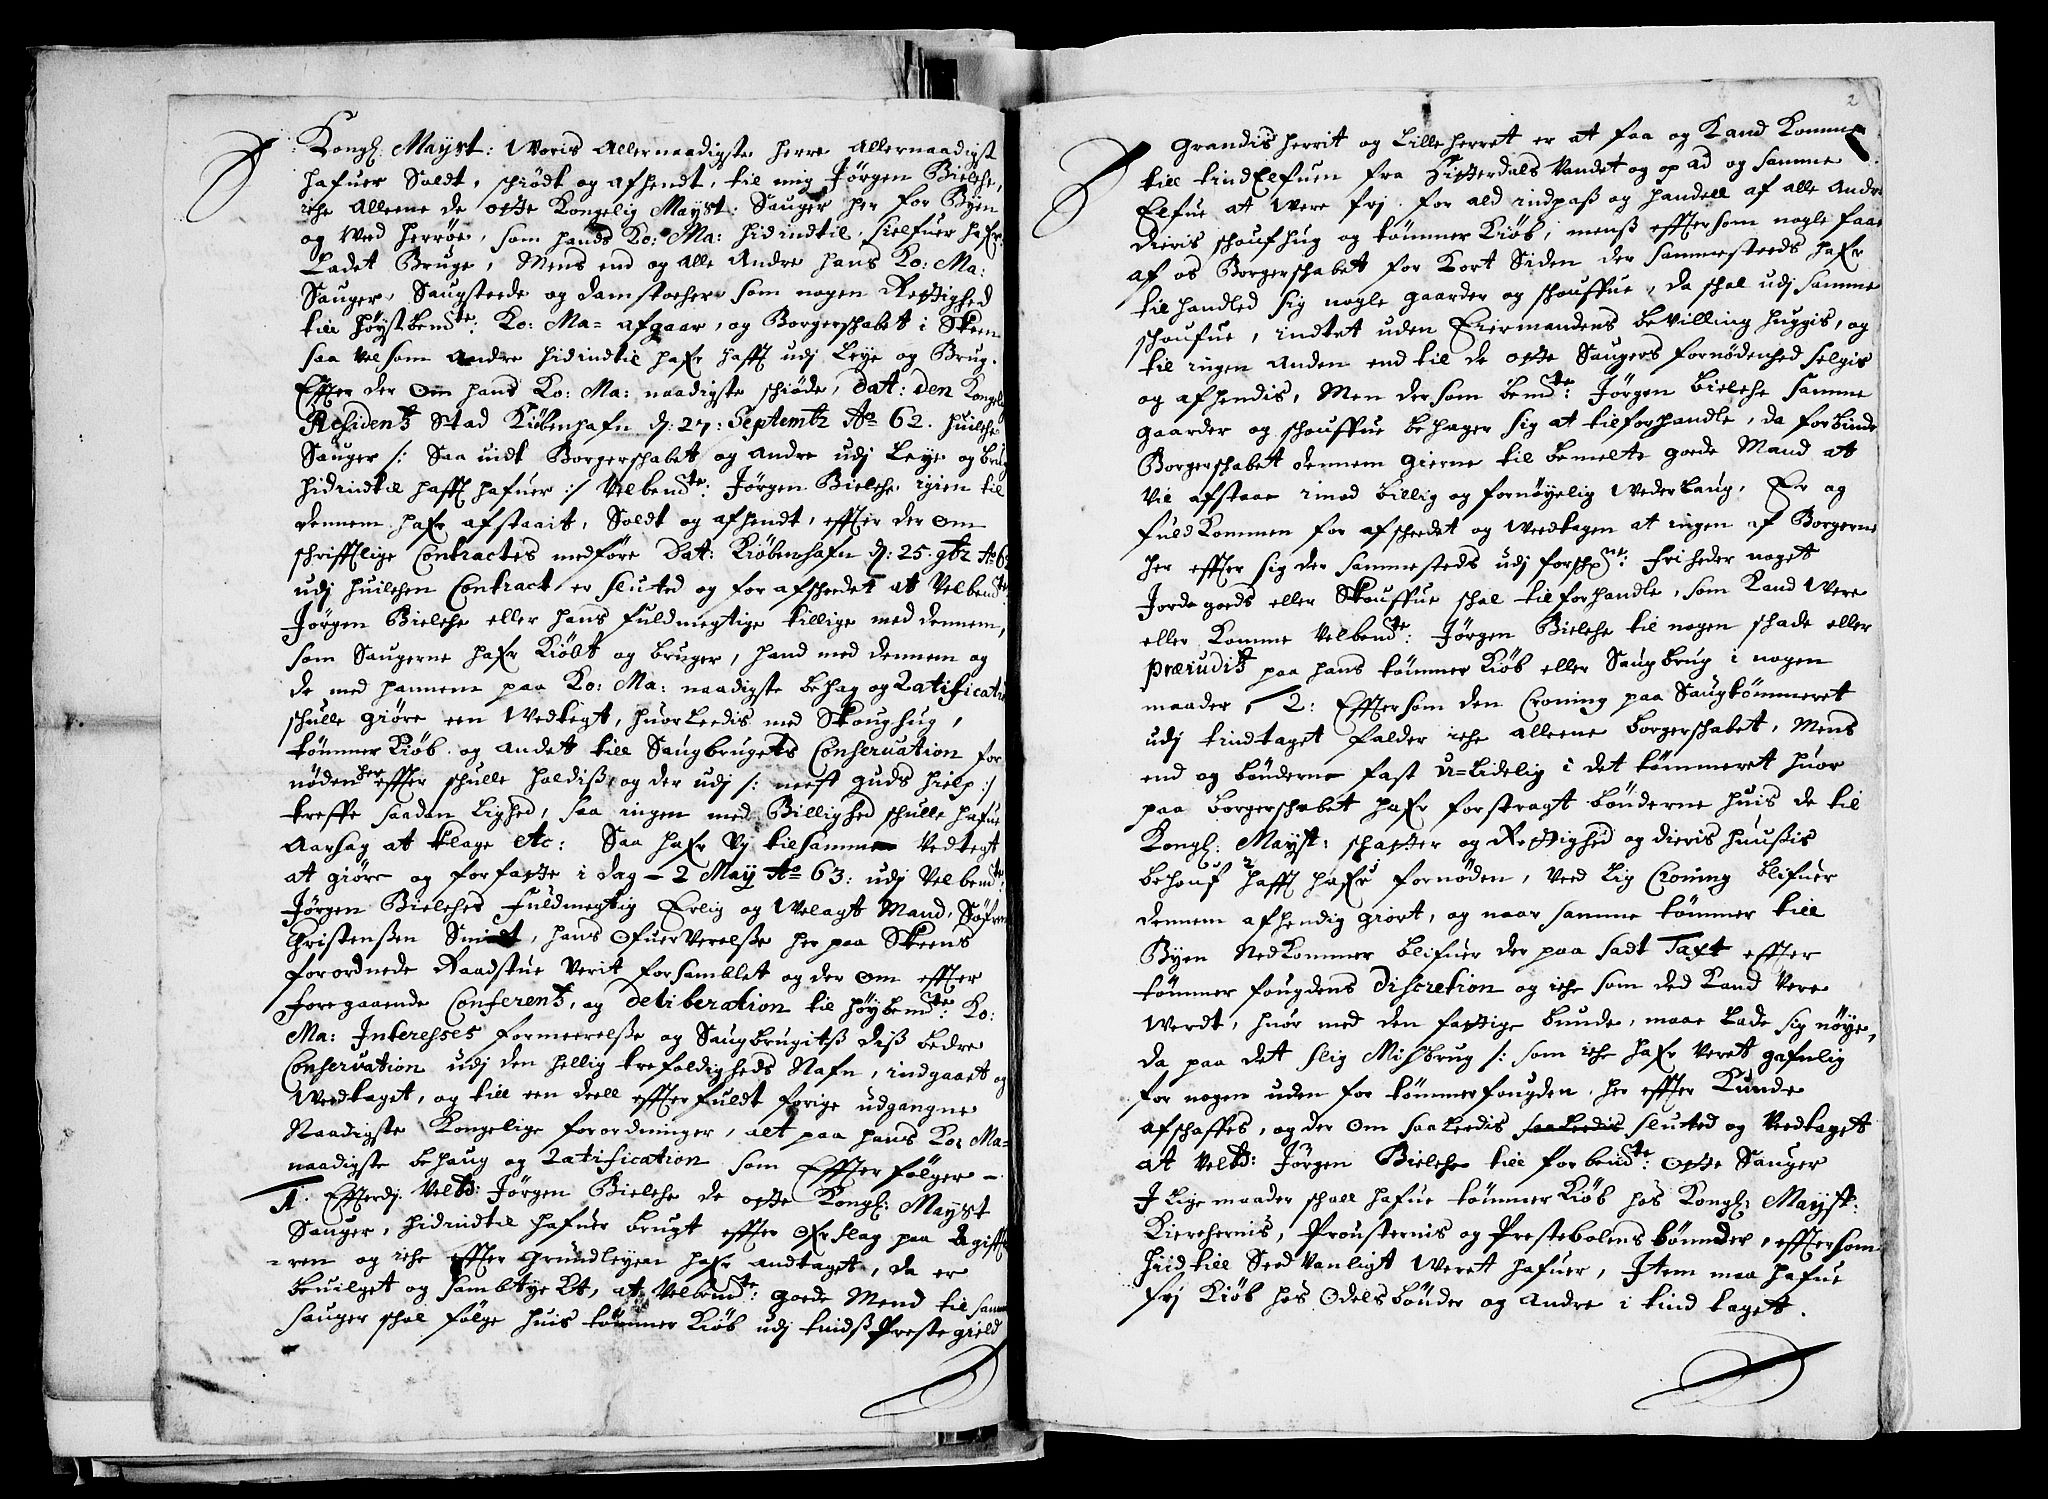 Kongl: Mayst: Woris Allernaadigste herre Allernaadigst
hafuer Soldt, schiødt og afhendt, til mig Jørgen Bielche,
iche Alleene de otte Kongelig Mayst: Sauger her for Byen
og Wed herrøe, som hands Ko: Ma: hidindtil, sielfuer hafr
Ladet Bruge, Mens end og Alle Andre hans Ko: Ma:
Sauger, Saugsteede og damstocher som nogen Rettighed
till høystbemte: Ko: Ma= afgaar, og Borgerschabet i Skeen
saa vel som Andre hidindtil hafr hafft udj Leye og Brug.
Effter der Om hans Ko: Ma: naadigste schiøde, Dat: den Kongelig
Residentz Stad Kiøbenhafn d: 27: Septembr Ao 62. huilche
Sauger /: Saa uidt Borgerschabet og Andre udj Leye og brug
hidindtil hafft hafuer :/ Velbemte: Jørgen Bielche igien til
dennem hafr afstaait, Soldt og afhendt, effter der Om
schrifftlige Contractis medføre Dat: Kiøbenhafn d: 25. 9br Ao 62
udj huilchen Contract er sluted og for afscheedet at Velbemte:
Jørgen Bielche eller hans fuldmegtige tillige med dennem,
som Saugerne hafr Kiøbt og bruger, hand med dennem og
de med hannem paa Ko: Ma: naadigste behag og Ratification
schulle giøre een Wedtegt, huorLeedis med Skoughug,
tømmer Kiøb og Andet till Saugbrugets Conseruation for
nøden her effter schulle holdiss, og der udj /: nest guds hielp :/
treffe saadan Lighed, saa ingen med Billighed schulle hafue
Aarsag at klage etc: Saa hafr Vj tilsammen Vedtegt
at giøre og forfatte i dag - 2 May Ao 63: udj Velbemte:
Jørgen Bielches Fuldmegtig Erlig og Welagt Mand, Søfren
Christenssen Smidt, hans Ofueruerelsse her paa Skeens
forordnede Raadstue verit forsamblet og der Om effter
foregaaende Conferentz, og Deliberation til høybemte: Ko:
Ma: Interesses formeerelsse og Saugbrugitss diss bedre
Conseruation udj den hellig trefoldigheds Nafn, indgaaet og
Wedtaget, og till een deell effterfuldt forige udgangne
Naadigste Kongelige forordninger, alt paa hans Ko: Ma=
naadigste behaug og Ratification som Effterfølger -
1. Efterdj Velbd: Jørgen Bielche de otte Kongl: Mayst
Sauger, hidindtil hafuer brugt effter Ofrslag paa Udgifft
=ren og iche effter Grundleyen hafr Andtaget, da er
beuilget og Sambtycht, at Velbemte: goede Mend til samme
Sauger schal følge huis tømmer Kiøb udj tindss Prestegield
2
Grandisherrit og Lilleherret er at faa og Kand Komme
till tindElfuen fra Hitterdals Vandet og op ad og samme
Elfue at Were frj. for ald indpass og handell af alle Andre
dieris schoufhug og tømmer Kiøb, menss efftersom nogle faa
af os Borgerschabet for Kort Siden der sammesteeds hafr
tilhandled sig nogle gaarder og schouffue, da schal udj samme
schoufue, indtet uden Eiermandens bevilling huggis, og
til ingen Anden end til de otte Saugers fornødenhed selgis
og afhendis, Men dersom bemte: Jørgen Bielche samme
gaarder og schouffue behager sig at tilforhandle, da forbinde
Borgerschabet dennem gierne til bemelte goede Mand at
vil afstaae imod billig og fornøyelig Wederlaug, Er og
fuldKommen for afscheedet og Wedtagen at ingen af Borgerne
her effter sig der sammesteds udj forschne: friheder noget
Jorde goeds eller Skouffue schal tilforhandle, som Kand Were
eller Komme Velbemte: Jørgen Bielche til nogen schade eller
præiuditz paa hans tømmer Kiøb eller Saugbrug i nogen
maader, 2: Efftersom den Croning paa Saugtømmeret
udj tindtaget falder iche alleene borgerschabet, Mens
end og bønderne fast U=lidelig i det tømmeret huor
paa borgerschabet hafr forstragt bønderne huis de til
Kongl: Mayst: schatter og Rettighed og dieris huussis
behouf hafft hafr fornøden, Ved Lig Croning blifuer
dennem afhendig giort, og naar samme tømmer till
Byen NedKommer blifuer der paa sadt Taxt effter
tømmer fougdens Discretion og iche som ded Kand Vere
Werdt, huor med den fattige bunde, maae Lade sig nøye,
da paa det slig Misbrug /: som iche hafr Veret gafnlig
for nogen uden for tømmerfougden, her effter Kunde
afschaffes, og der Om saaLeedis saaLeedis sluted og Vedtaget
at Velbd: Jørgen Bielche till forbemte: otte Sauger
J Lige maader schall hafue tømmer Kiøb hos Kongl: Mayst:
Kierchernis, Prousternis og Prestebolens bønnder, efftersom
hiid till Sedvanligt Weret hafuer, Jtem maa hafue
frj Kiøb hos Odelsbønder og Andre i tind taget.